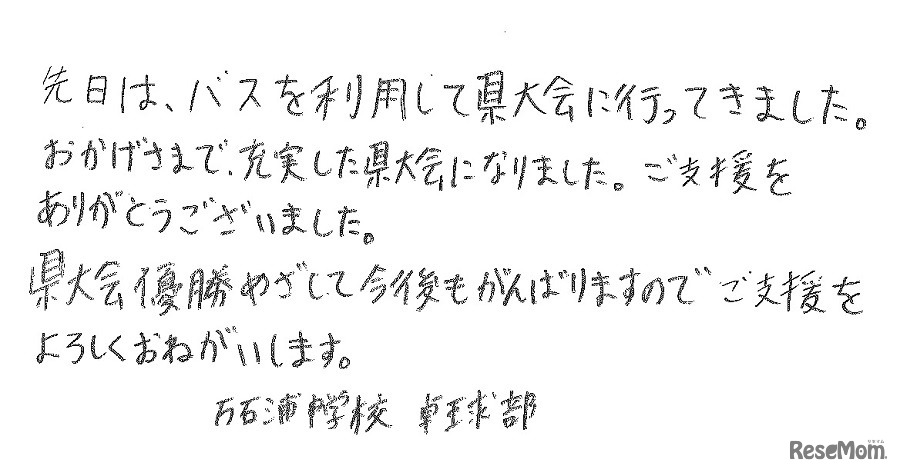 先日は、バスを利用して県大会に行ってきました。
おかげさまで、充実した県大会になりました。ご支援を
ありがとうございました。
県大会優勝めざして今後もがんばりますのでご支援を
よろしくおねがいします。
万石浦中学校 卓球部
ReseMom.